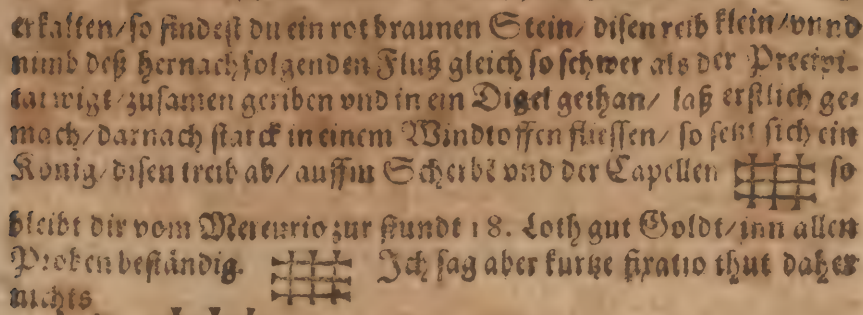 erkalten/ so findest du ein rotbraunen Stein/ disen reib klein/ vnnd
nimb deß hernachfolgenden Fluß gleich so schwer als der Precipi-
tat wigt/ zusamen geriben vnd in ein Digel gethan/ laß erstlich ge-
mach/ darnach starck in einem Windtoffen fliessen/ so setzt sich ein
König/ disen treib ab/ auffm Scherbē vnd der Capellen so
bleibt dir vom Mercurio zur stundt 18. Loth gut Goldt/ inn allen
Proben beständig. Ich sag aber kurtze fixatio thut daher
nichts